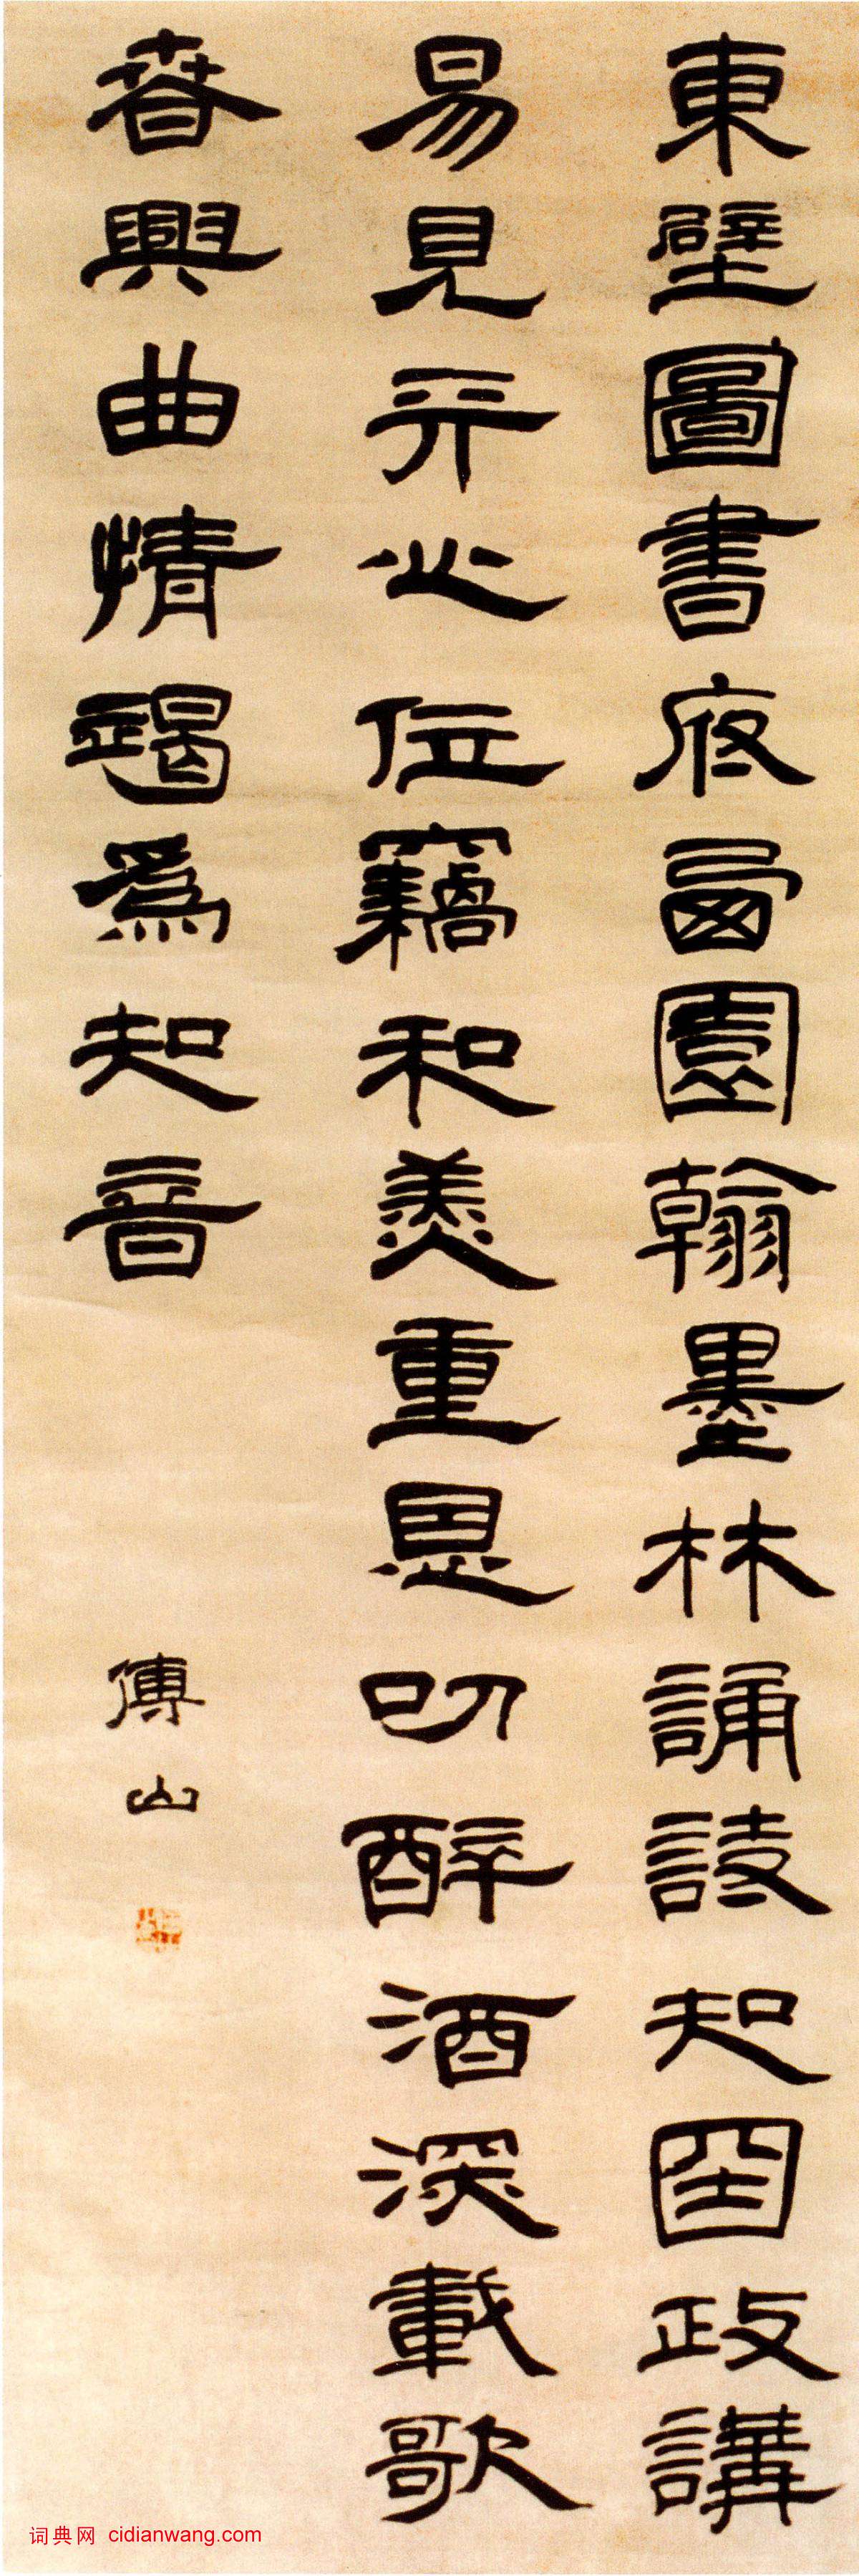 東壁圖書府西園翰墨林誦詩知國政講
易見天心位竊和羹重恩叨醉酒深載歌
春興曲情竭爲知音
傅山
词典网 cidianwang.com